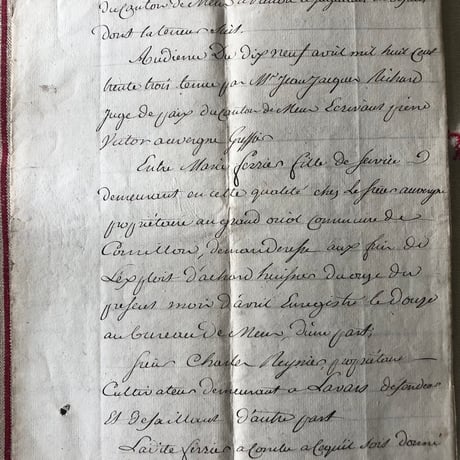 du Canton de Mens a rendu le jugement
dont la teneur Suit.
Audience Du dix neuf avril mil huit cent
trente trois tenue par Mr. Jean Jacques Richard
Juge de paix du Canton de Mens Ecrivant pierre
Victor auvergne Greffier
Entre Marie Ferrier fille de Service
demeurant en cette qualité chez Le Sieur auvergne
propriétaire au grand oriol commune de
Cornillon, demanderesse aux fins de
L'exploit d'achard huissier du onze du
present mois d'avril Enregistré le douze
au bureau de Mens, d'une part;
Sieur Charles Reynier propriétaire
Cultivateur demeurant a Lavars defendeur
Et defaillant d'autre part
Ladite ferrier a Conclu a Cequil Soit donné